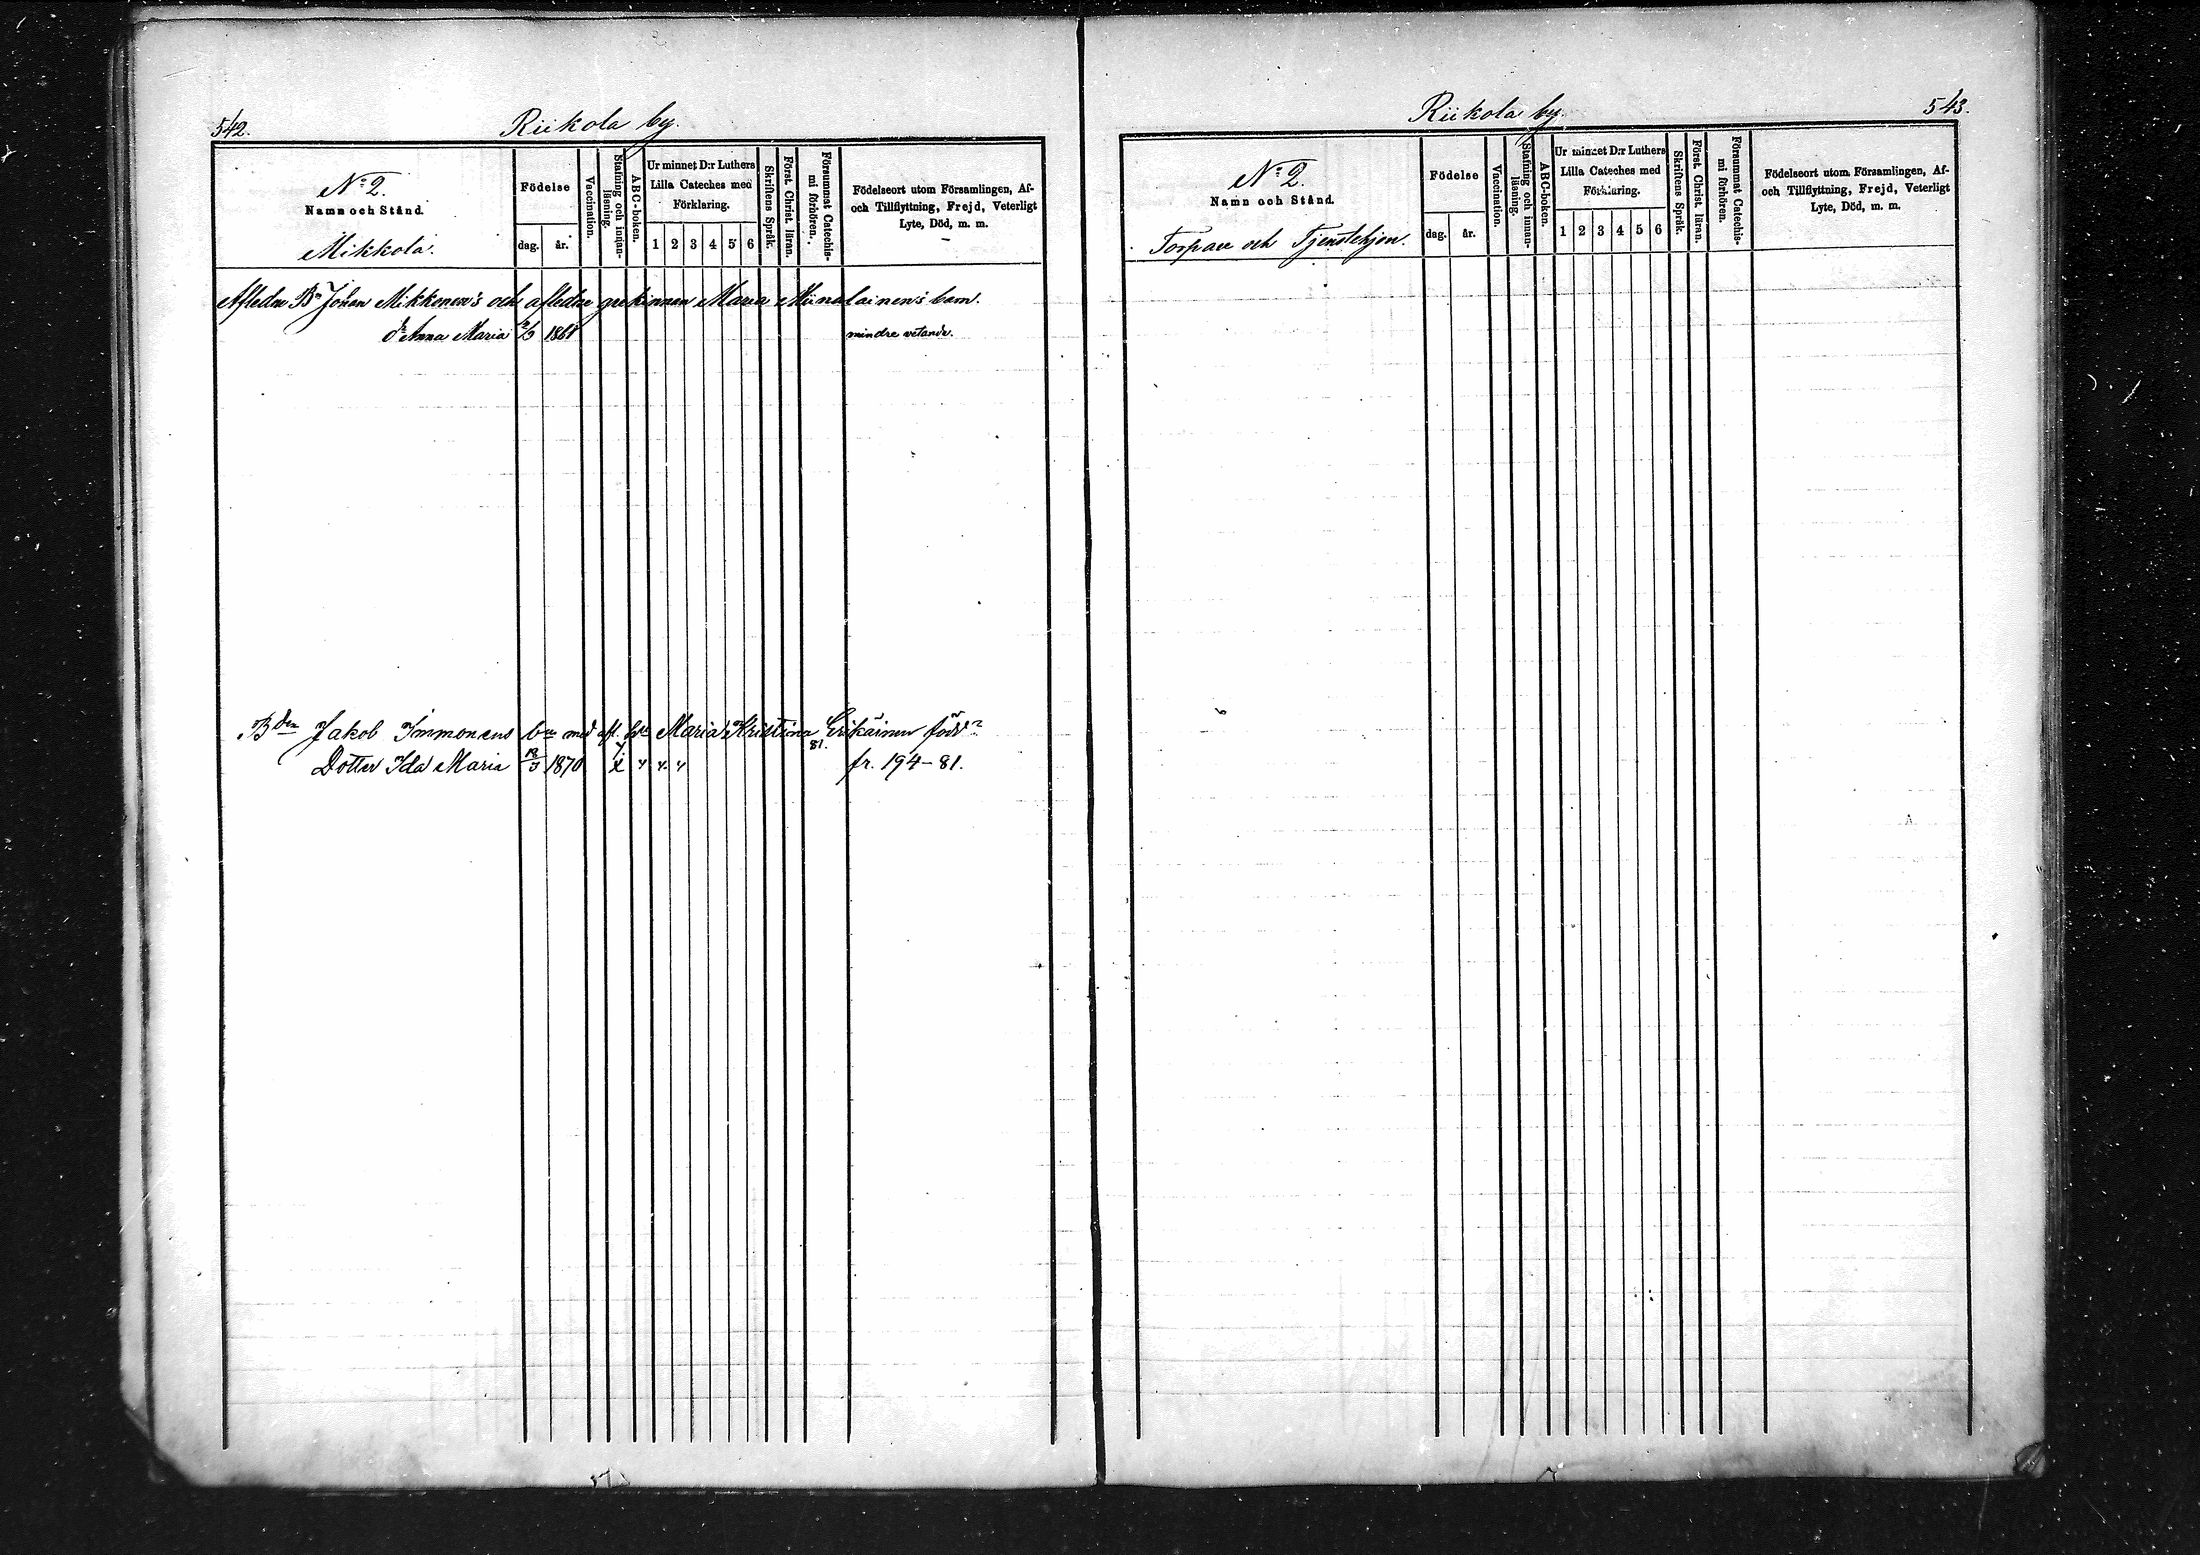 542.
Riikola by.
No 2.
Namn och Stånd.
Mikkola.
Födelse
dag. år.
Vaccination.
Stafning och innan-läsning.
ABC-boken.
Ur minnet D:r Luthers
Lilla Cateches med
Förklaring.
1 2 3 4 5 6
Skriftens Språk.
Först. Christ. läran.
Försummat Catechis-mi förhören.
Födelseort utom Församlingen, Af-
och Tillflyttning, Frejd, Veterligt
Lyte, Död, m. m.
Afledne Bn Johan Mikkonen's och afledne grekinnan Maria barn.
dr Anna Maria 1861 mindre vetande.
Bden Jakob Immonens med afl. Maria Kristiina Erikäinen född
81.
Dotter Ida Maria 1870 x " " " fr. 194-81.
543.
Riikola by.
No 2.
Namn och Stånd.
Torpare och Tjenstehjon.
Födelse
dag. år.
Vaccination.
Stafning och innan-läsning.
ABC-boken.
Ur minnet D:r Luthers
Lilla Cateches med
Förklaring.
1 2 3 4 5 6
Skriftens Språk.
Först. Christ. läran.
Försummat Catechis-mi förhören.
Födelseort utom Församlingen, Af-
och Tillflyttning, Frejd, Veterligt
Lyte, Död, m. m.